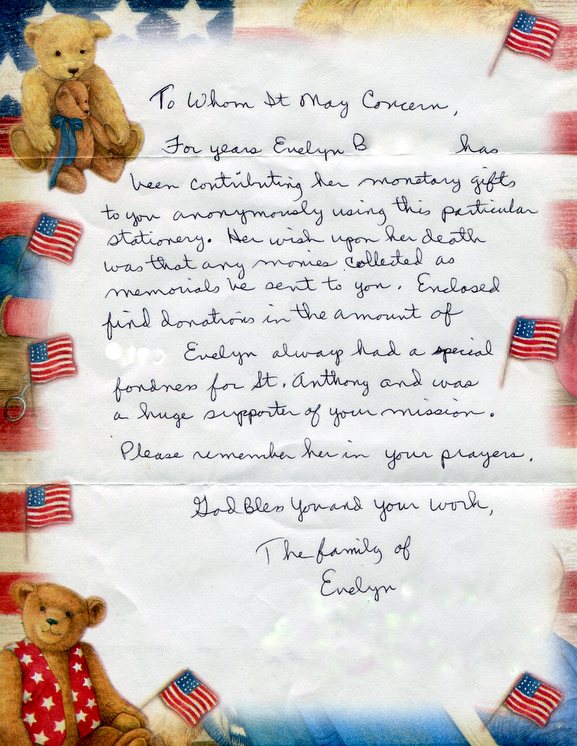 To Whom It May Concern,
For years Evelyn B has
been contributing her monetary gifts
to you anonymously using this particular
stationery. Her wish upon her death
was that any monies collected as
memorials be sent to you. Enclosed
find donations in the amount of
Evelyn always had a special
fondness for St. Anthony and was
a huge supporter of your mission.
Please remember her in your prayers.
God Bless You and your work,
The family of
Evelyn